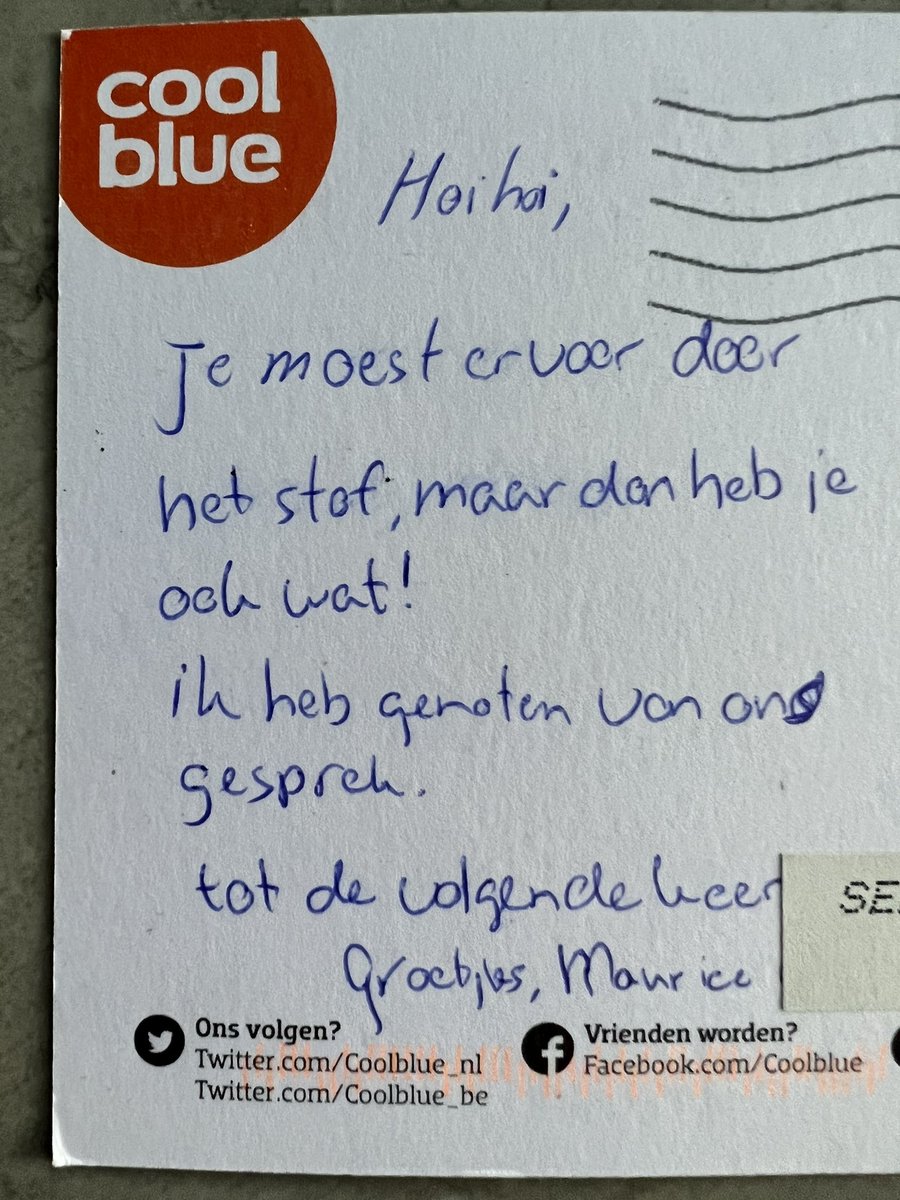 cool
blue
Hoi hoi,
Je moest ervoor door
het stof, maar dan heb je
ook wat!
ik heb genoten van ons
gesprek.
tot de volgende keer
Groetjes, Maurice
SE
Ons volgen?
Twitter.com/Coolblue_nl
Twitter.com/Coolblue_be
Vrienden worden?
Facebook.com/Coolblue